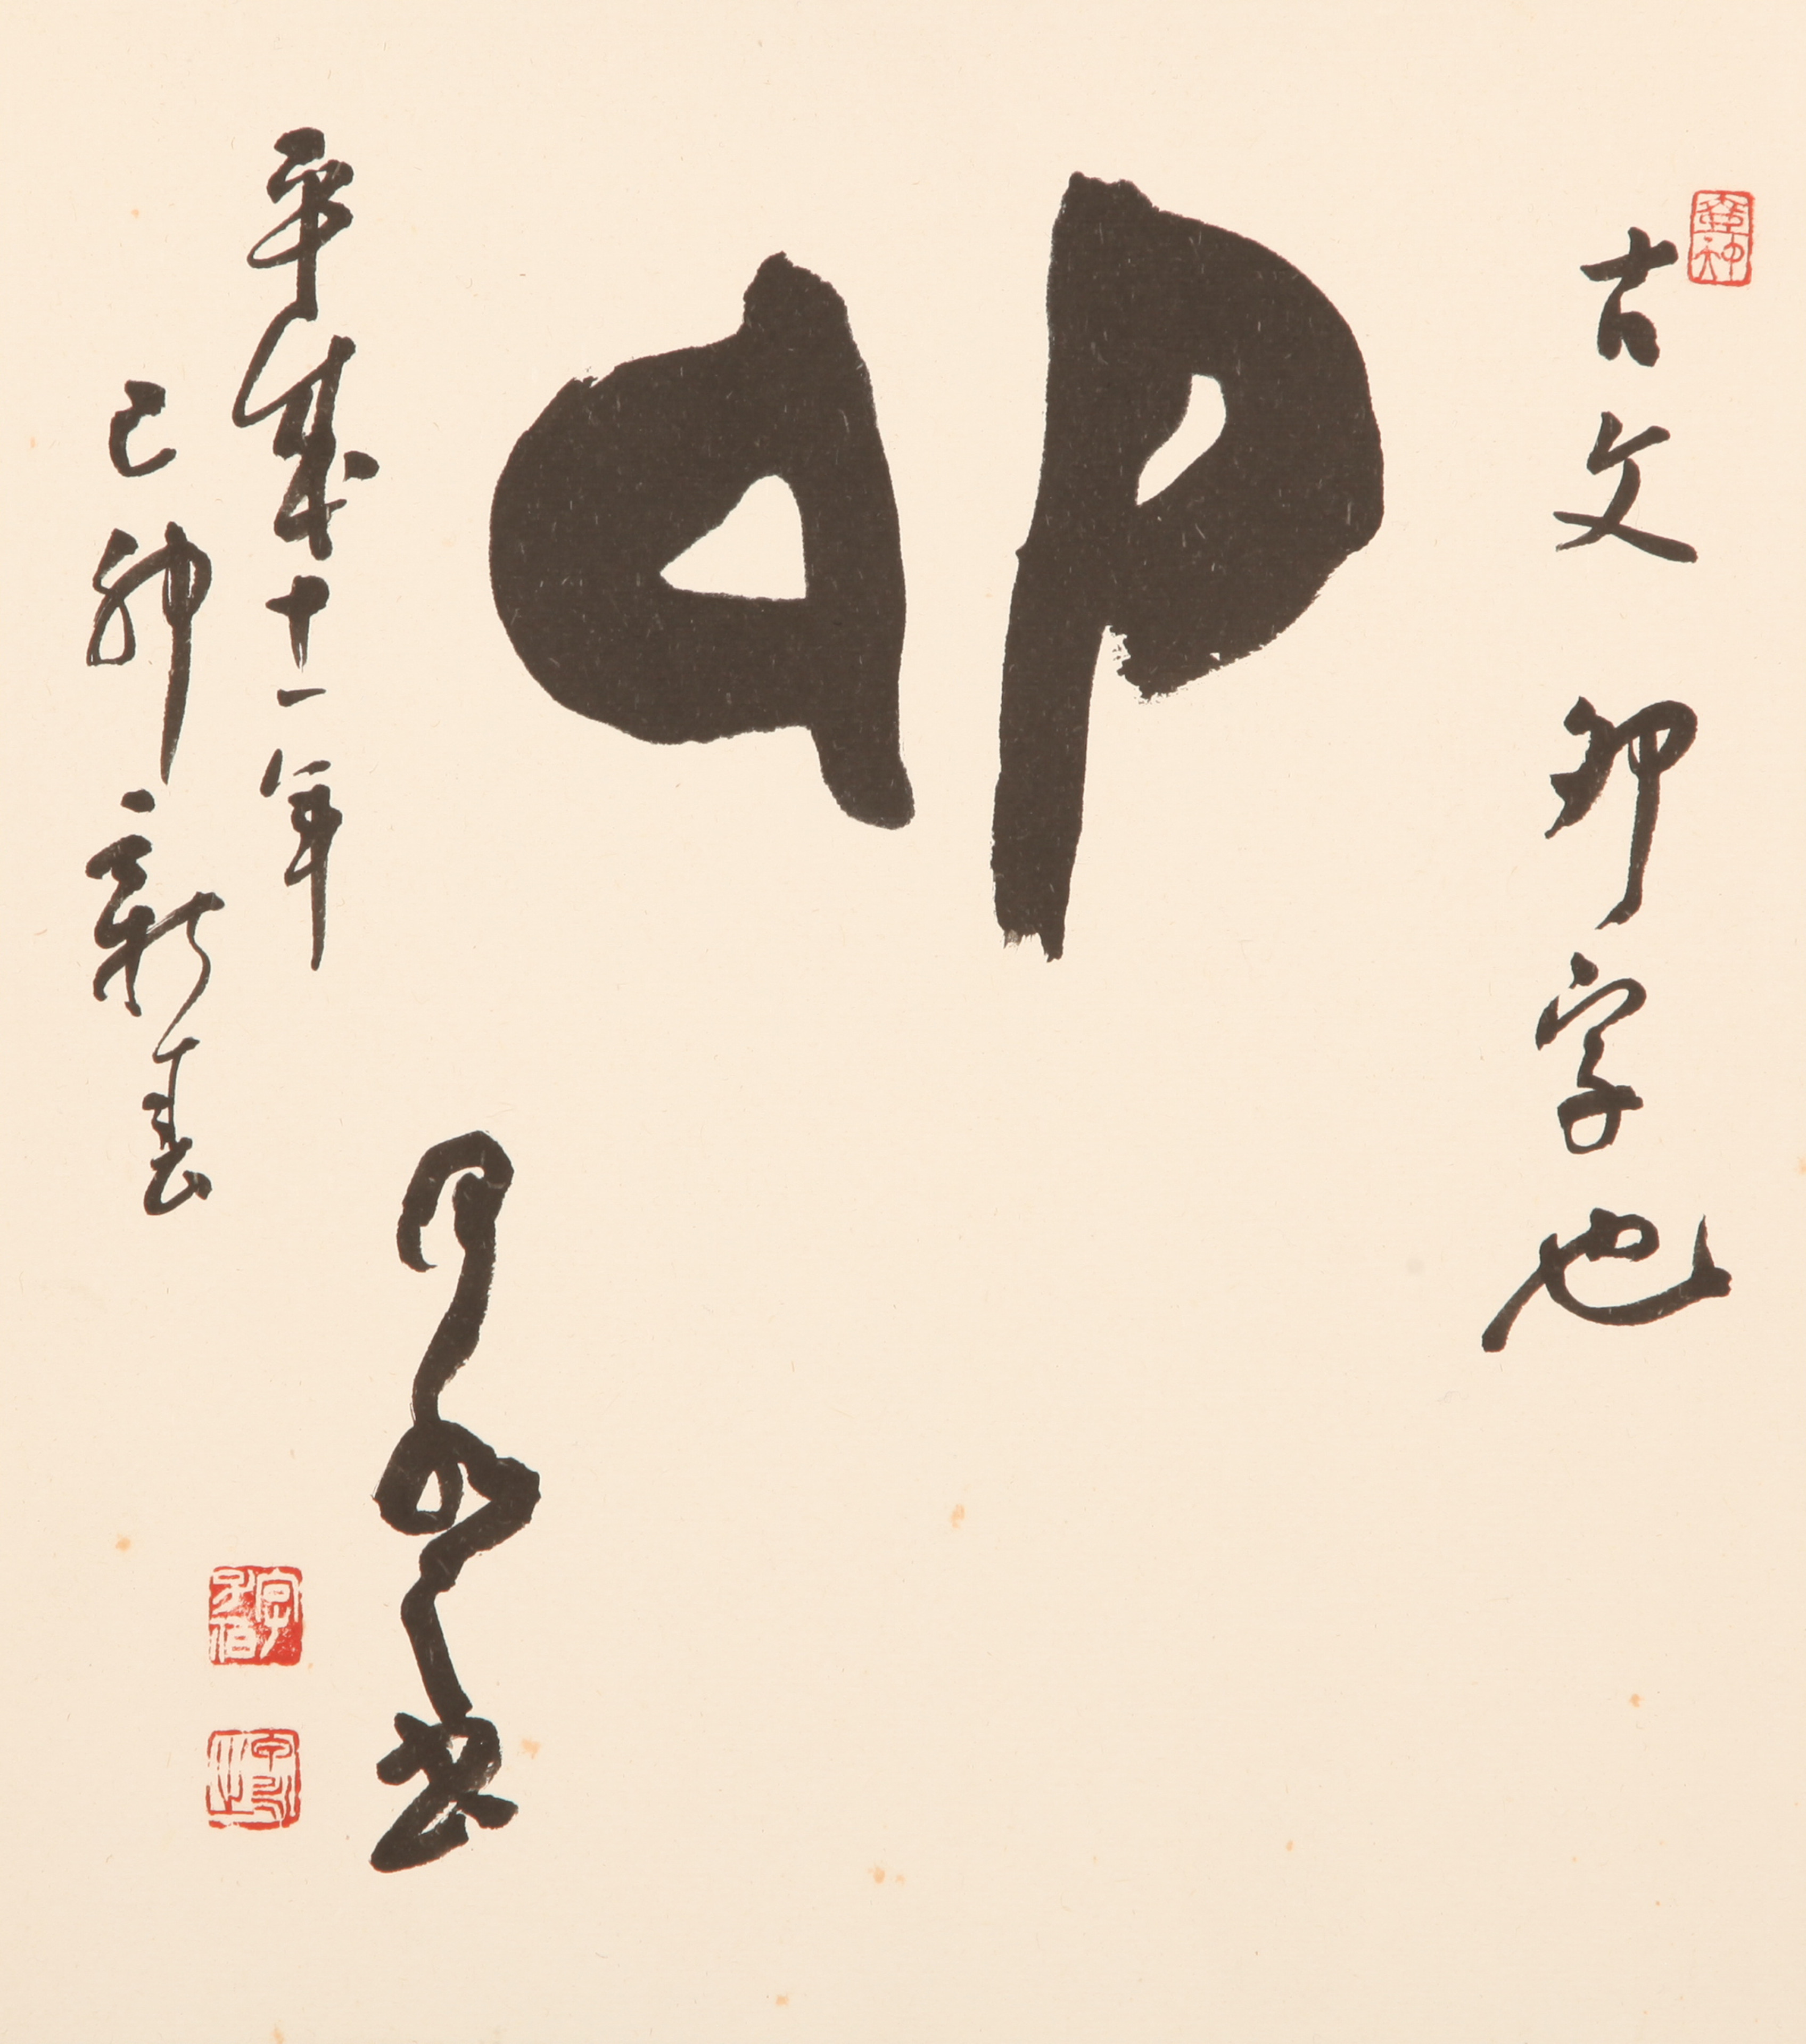 古文卯字也
卯
平成十一年
己卯新春
書